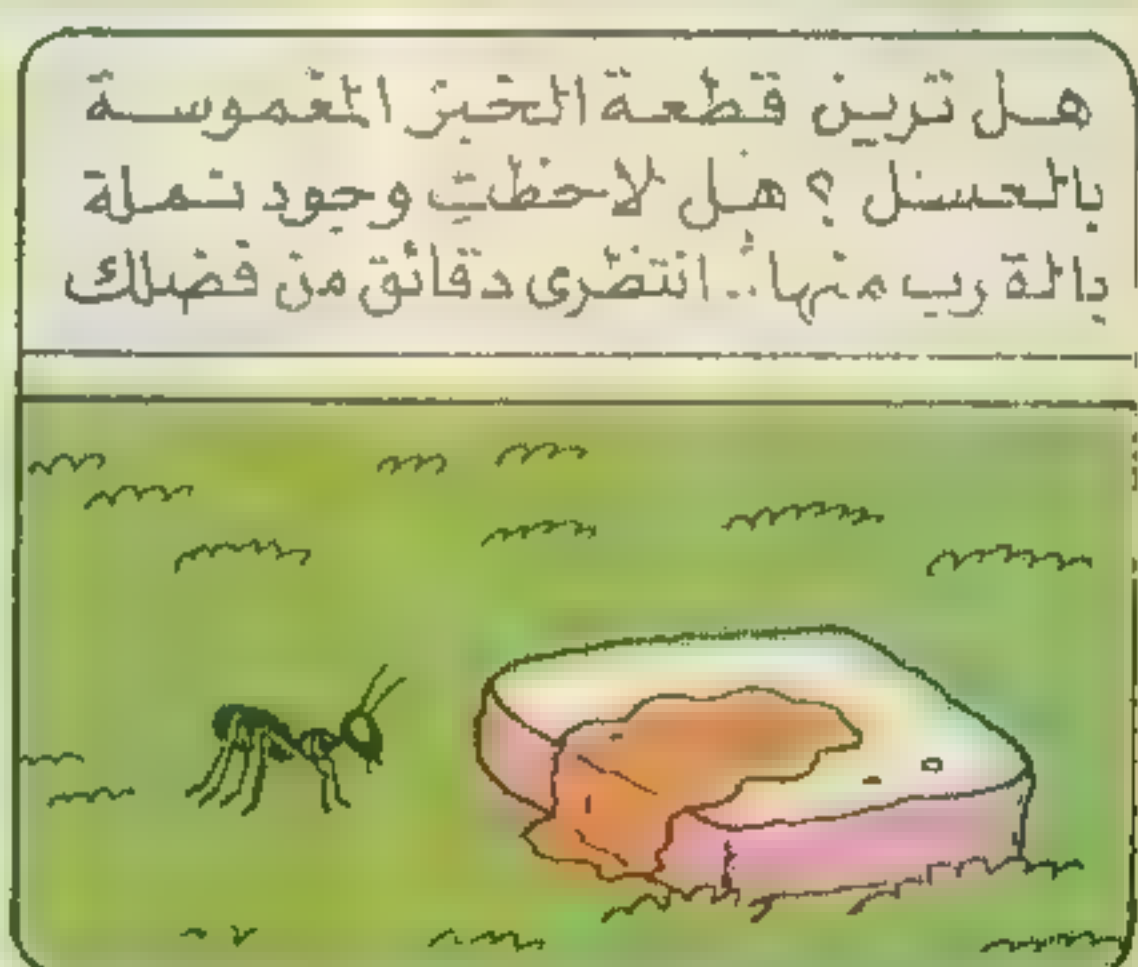 هل ترين قطعة الخبز المغموسة
بالعسل ؟ هل لاحظتِ وجود نملة
بالقرب منها .. انتضرى دقائق من فضلك